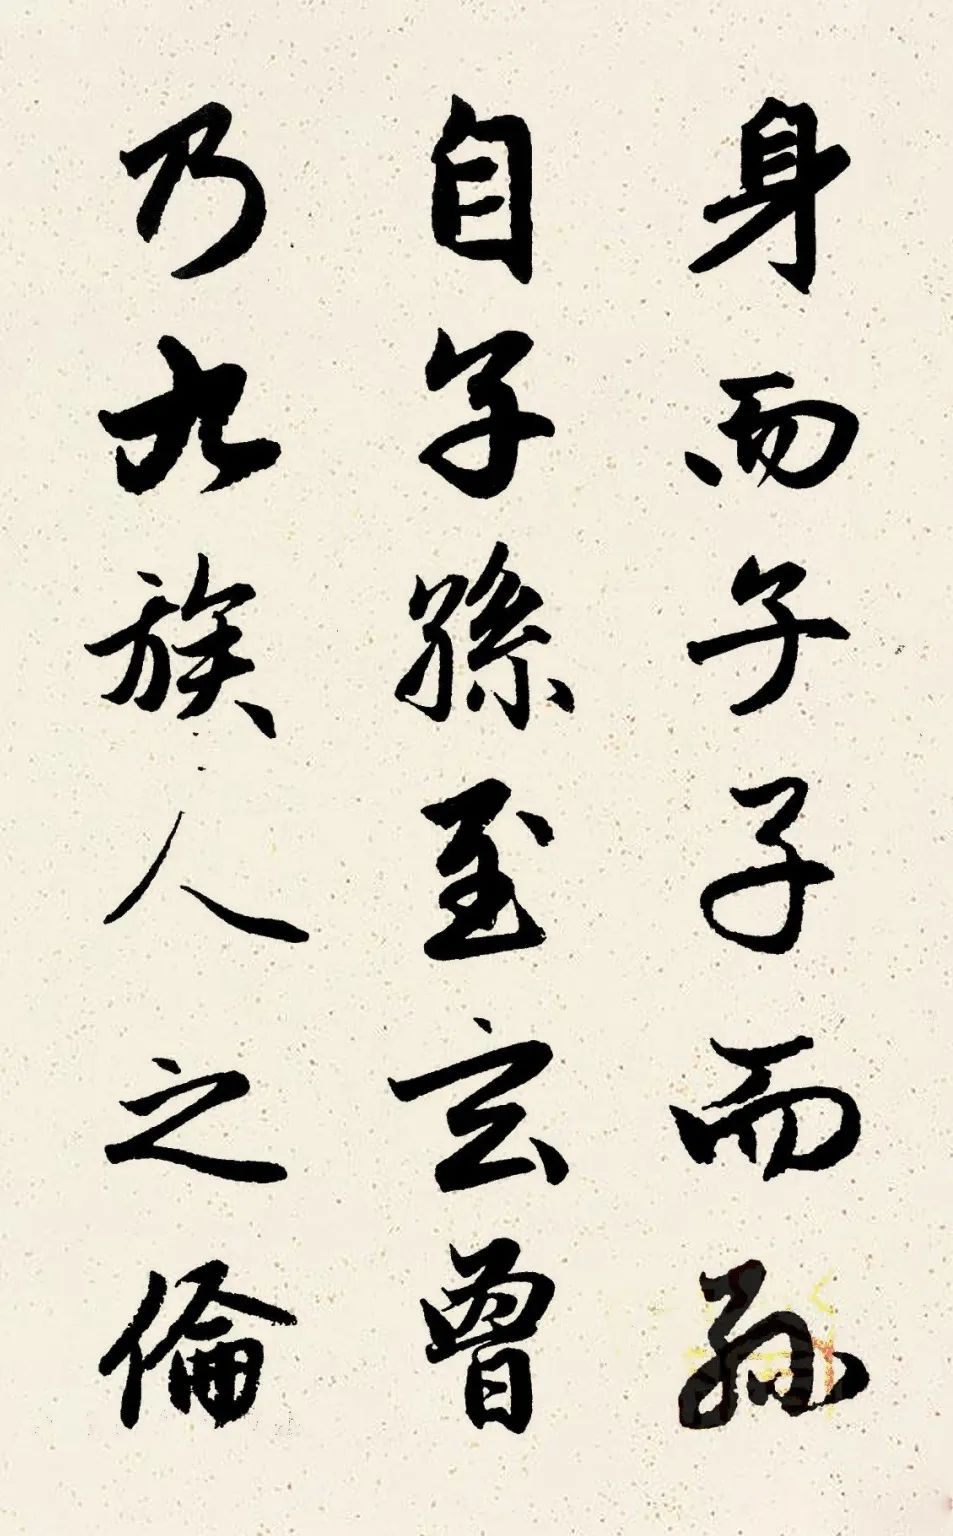 身而子子而孫
自子孫至玄曾
乃九族人之倫